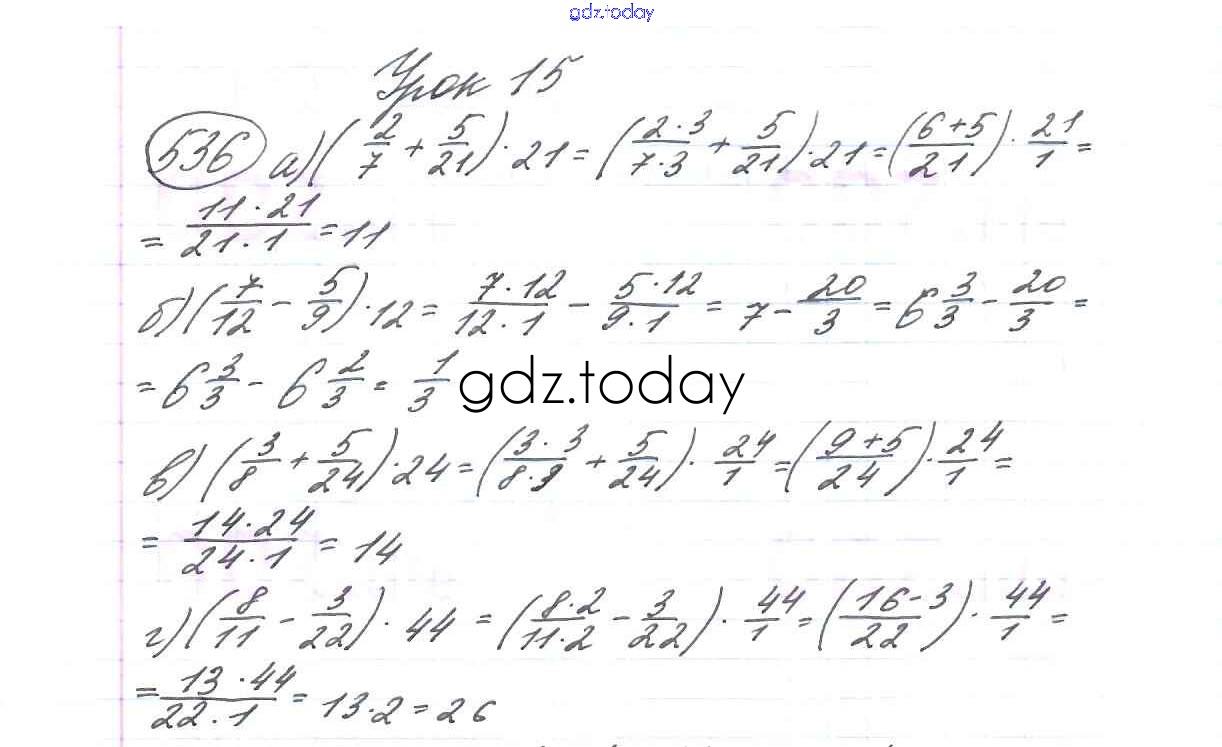 gdz.today
Урок 15
536 а) (2/7 + 5/21) · 21 = (2·3/7·3 + 5/21) · 21 = (6+5/21) · 21/1 =
= 11·21/21·1 = 11
б) (7/12 - 5/9) · 12 = 7·12/12·1 - 5·12/9·1 = 7 - 20/3 = 6 3/3 - 20/3 =
= 6 3/3 - 6 2/3 = 1/3 gdz.today
в) (3/8 + 5/24) · 24 = (3·3/8·3 + 5/24) · 24/1 = (9+5/24) · 24/1 =
= 14·24/24·1 = 14
г) (8/11 - 3/22) · 44 = (8·2/11·2 - 3/22) · 44/1 = (16-3/22) · 44/1 =
= 13·44/22·1 = 13·2 = 26